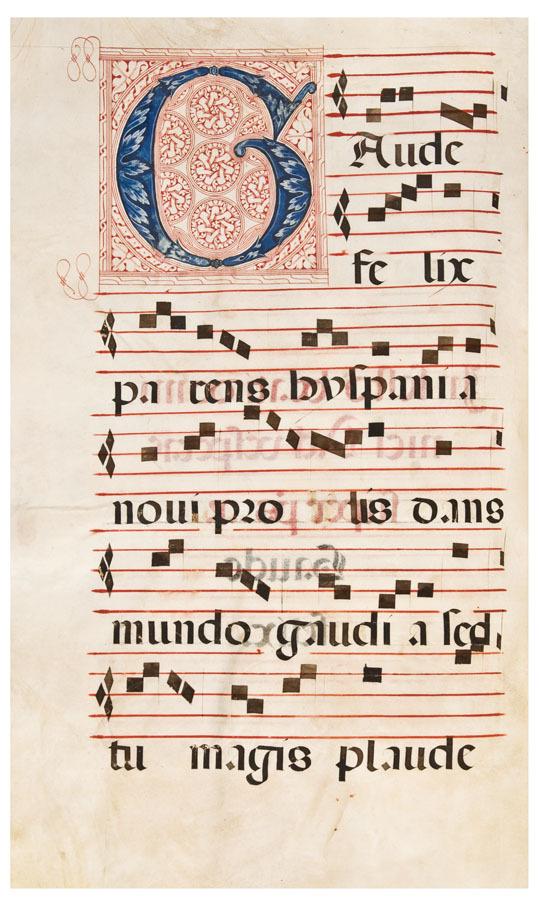 GAude
fe lix
pa rens hyspani a
noui pro lis dans
mundo gaudi a sed.
tu magis plaude